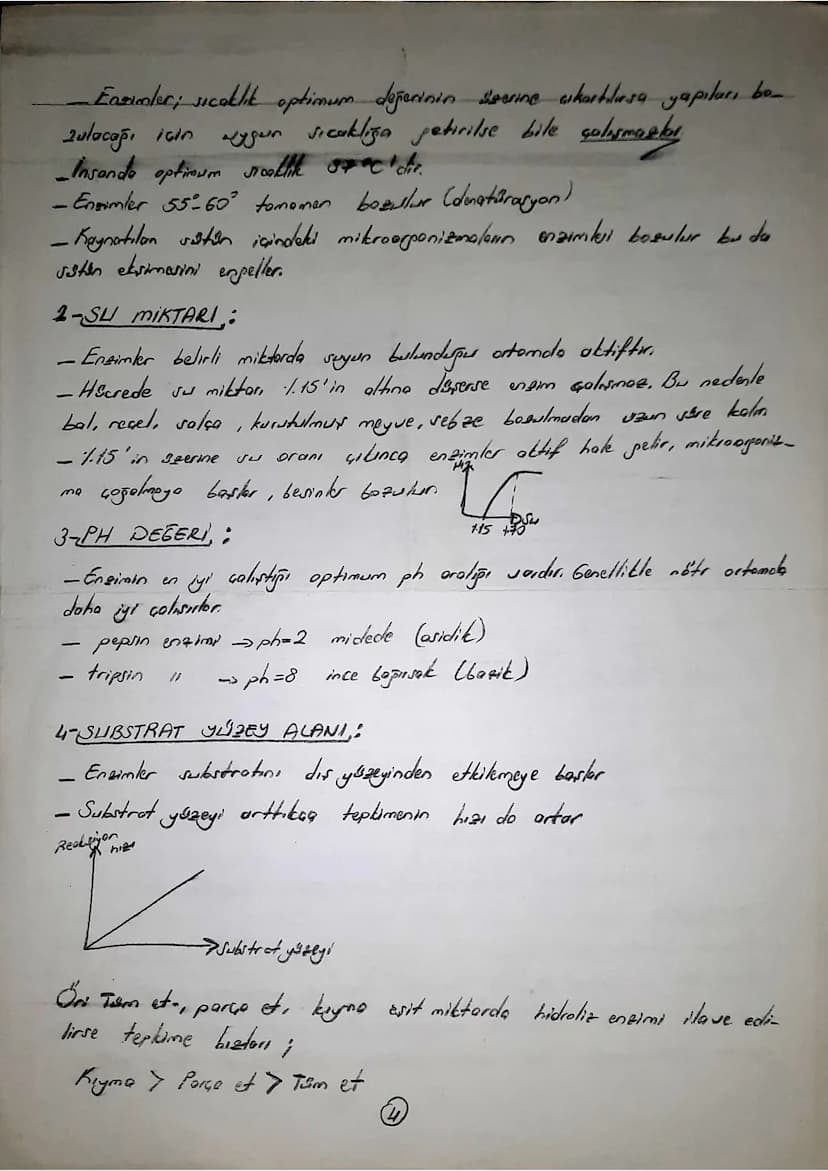 — Enzimler; sıcaklık optimum değerinin üzerine çıkartılırsa yapıları bo-
zulacağı için uygun sıcaklığa getirilse bile çalışmazlar
— İnsanda optimum sıcaklık 37°C'dir.
— Enzimler 55°-60° tamamen bozulur (denatürasyon)
— Kaynatılan sütün içindeki mikroorganizmaların enzimleri bozulur bu da
sütün ekşimesini engeller.
2-SU MİKTARI:
— Enzimler belirli miktarda suyun bulunduğu ortamda aktiftir.
— Hücrede su miktarı %15'in altına düşerse enzim çalışmaz. Bu nedenle
bal, reçel, salça, kurutulmuş meyve, sebze bozulmadan uzun süre kalır
— %15'in üzerine su oranı çıkınca enzimler aktif hale gelir, mikroorganiz-
ma çoğalmaya başlar, besinler bozulur.
Hız
Su
%15
3-PH DEĞERİ:
— Enzimin en iyi çalıştığı optimum ph aralığı vardır. Genellikle nötr ortamda
daha iyi çalışırlar.
— pepsin enzimi → ph=2 midede (asidik)
— tripsin " → ph=8 ince bağırsak (bazik)
4-SUBSTRAT YÜZEY ALANI:
— Enzimler substratını dış yüzeyinden etkilemeye başlar
— Substrat yüzeyi arttıkça tepkimenin hızı da artar
Reaksiyon
hızı
Substrat yüzeyi
Ör: Tüm et, parça et, kıyma eşit miktarda hidroliz enzimi ilave edi-
lirse tepkime hızları;
Kıyma > Parça et > Tüm et
4